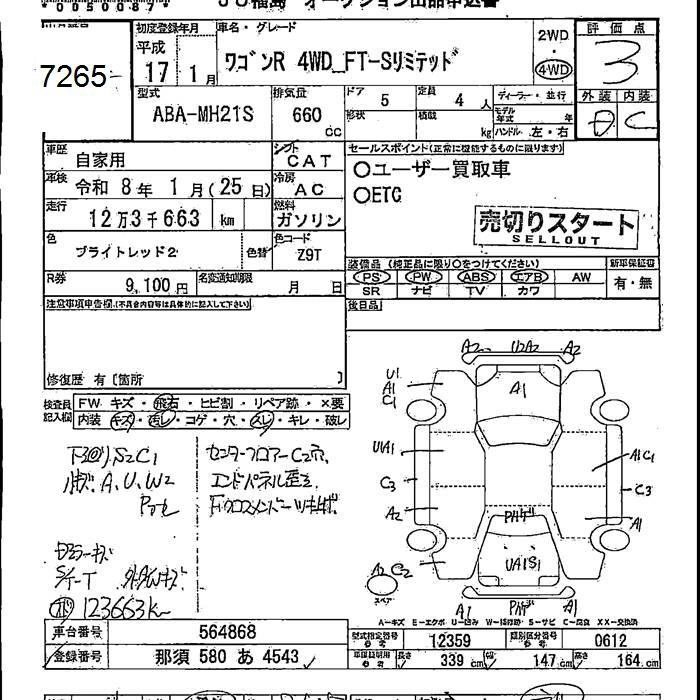 00500877
JU福島 オークション出品申込書
7265
初度登録年月
平成
17 1月
車名・グレード
ワゴンR 4WD_FT-Sリミテッド
2WD
4WD
評価点
3
外装 内装
D C
型式
ABA-MH21S
排気量
660
cc
ドア
5
形状
定員
4 人
積載
kg
ディーラー・並行
モデル年式 年
ハンドル 左・右
車歴
自家用
シフト
CAT
車検
令和 8年 1月(25日)
冷房
AC
走行
12万3千663 km
燃料
ガソリン
色
ブライトレッド2
色替
色コード
Z9T
R券
9,100円
名変通知期限
月 日
セールスポイント(正常に機能するものに限ります)
○ユーザー買取車
○ETC
売切りスタート
SELLOUT
装備品 (純正品に限り○をつけてください)
PS PW ABS エアB AW
SR ナビ TV カワ
新車保証書
有・無
後日品
注意事項申告欄(不具合内容等は具体的に記入して下さい)
修復歴 有〔箇所 〕
検査員記入欄
FW キズ・飛石・ヒビ割・リペア跡・×要
内装 キズ・汚レ・コゲ・穴・スレ・キレ・破レ
下回りS2C1
A、U、W2
センターフロアーC2穴、
エンドパネル歪ミ、
S/T-T
123663K
A2 U2A2 A2
U1
A1
C1
A1
U1A1
A1C1
C3
C3
A2
A1
Pハゲ
UA1S1
A2 C2
スペア
A1 Pハゲ A1
A-キズ E-エクボ U-凹み W-補修跡 S-サビ C-腐食 XX-交換済
車台番号
564868
登録番号
那須 580 あ 4543
型式指定番号
参考
12359
類別区分番号
参考
0612
車検証明用
参考
長さ 339cm
幅 147cm
高さ 164cm